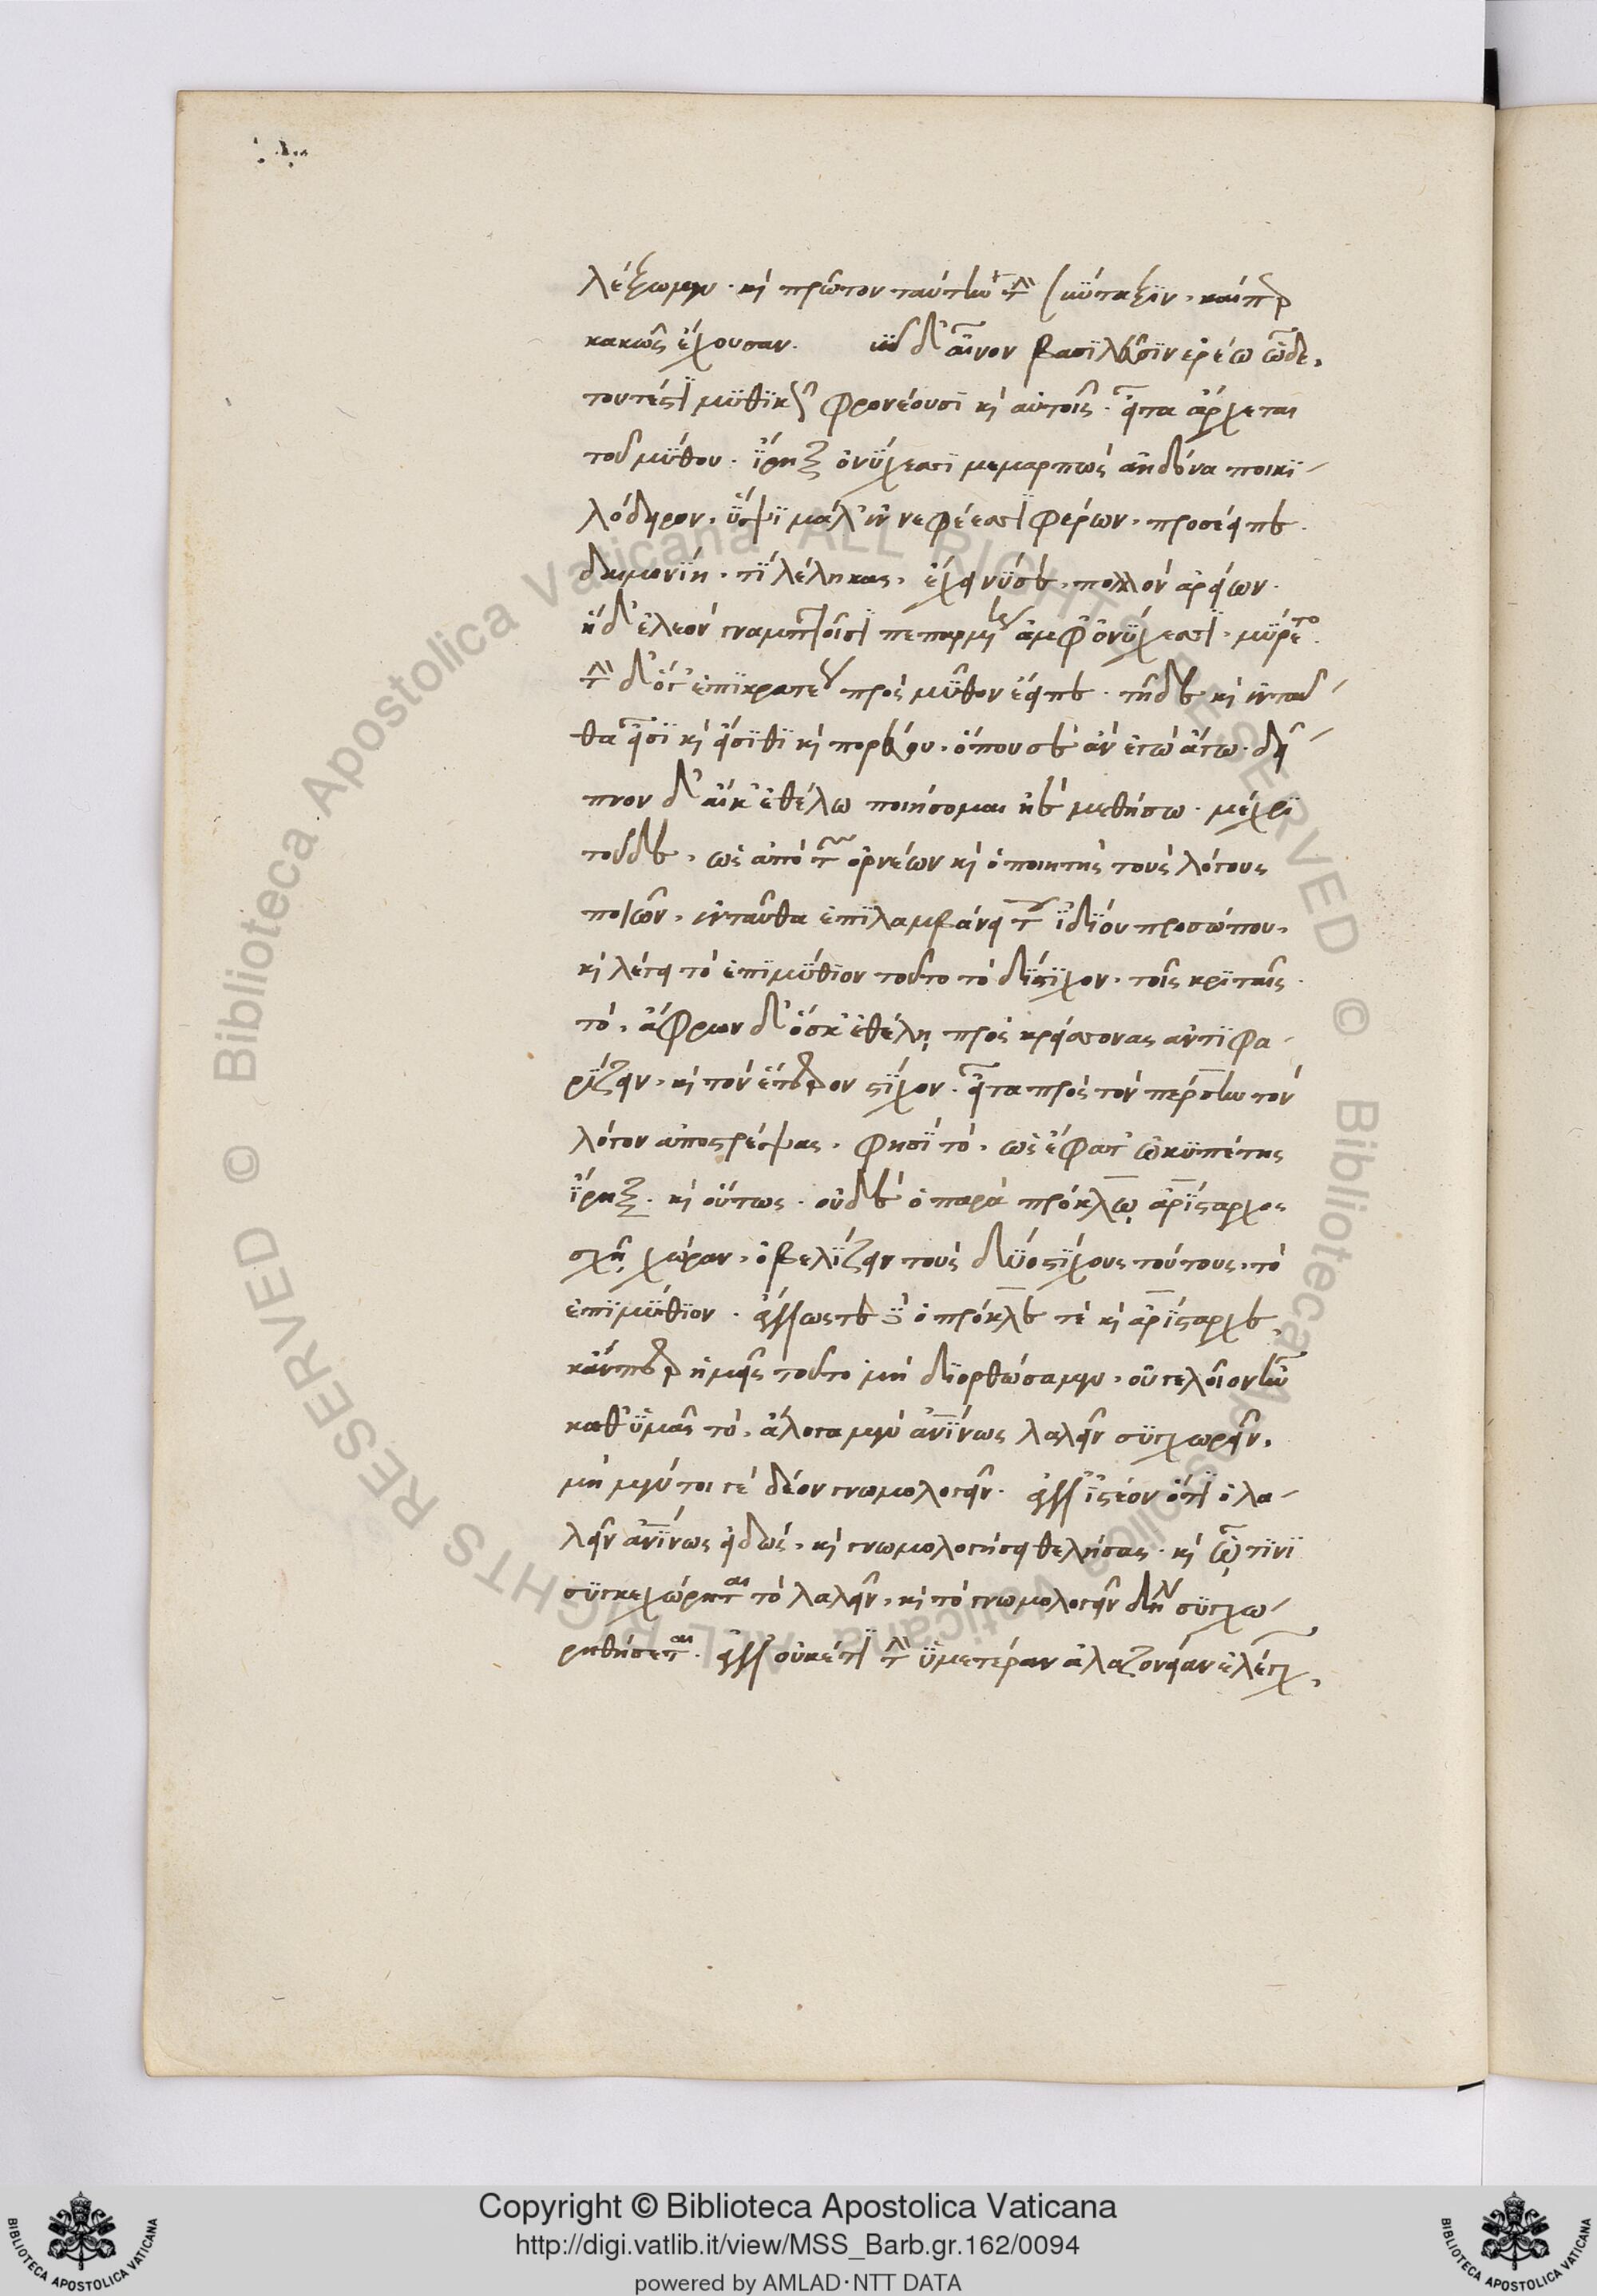 λέξωμεν. καὶ πρῶτον ταύτην τὴν σύνταξϊν, καίπερ
κακῶς ἔχουσαν. νῦν δ' αἶνον βασϊλεῦσϊν ἐρέω ὧδε,
τουτέστϊ μϋθϊκὸν φρονέουσϊ καὶ αὐτοῖς. εἶτα ἄρχεται
τοῦ μύθου. ἴρηξ ὀνύχεσσϊ μεμαρπὼς ἀηδόνα ποικϊ-
λόδειρον, ὕψϊ μάλ' ἐν νεφέεσσϊ φέρων, προσέειπε.
δαιμονίη, τί λέληκας, ἔχει νύ σε, πολλὸν ἀρείων.
ἡ δ' ἐλεὸν γναμπτοῖσϊ πεπαρμένη ἀμφ' ὀνύχεσσϊ, μύρετο.
τὴν δ' ὅγ' ἐπϊκρατέως πρὸς μῦθον ἔειπε. τῆδε καὶ ἐνταῦ-
θα εἶσϊ καὶ εἴσϊθϊ καὶ πορεύου, ὅπου σε ἂν ἐγὼ ἄγω. δεῖ-
πνον δ' αἴκ' ἐθέλω ποιήσομαι ἠὲ μεθήσω. μέχρϊ
τοῦδε, ὡς ἀπὸ τῶν ὀρνέων καὶ ὁ ποιητὴς τοὺς λόγους
ποιῶν, ἐνταῦθα ἐπϊλαμβάνει τοῦ ἰδίου προσώπου,
καὶ λέγει τὸ ἐπϊμύθϊον τοῦτο τὸ δίστϊχον, τοῖς κρϊταῖς
τὸ, ἄφρων δ' ὅσκ' ἐθέλῃ πρὸς κρείσσονας ἀντϊφα-
ρίζειν, καὶ τὸν ἕτερον στίχον. εἶτα πρὸς τὸν πέρσην τὸν
λόγον ἀποστρέψας, φησϊ τὸ, ὡς ἔφατ' ὠκϋπέτης
ἴρηξ. καὶ οὕτως. οὐδὲ ὁ παρὰ πρόκλῳ ἀρίσταρχος
σχῇ χώραν, ὀβελίζειν τοὺς δύο στίχους τούτους, τὸ
ἐπϊμύθϊον. ἀλλ' ὥστε ὁ πρόκλε τὲ καὶ ἀρίσταρχε,
κἄνπερ ἡμεῖς τοῦτο μὴ δϊορθώσαμεν, οὐ γελοῖον ἦν
καθ' ὑμᾶς τὸ, ἄλογα μὲν ἀνϊνως λαλεῖν συγχωρεῖν,
μὴ μέντοι γε δέον γνωμολογεῖν. ἀλλ' ἰστέον ὅτϊ ὁ λα-
λεῖν ἀνϊνως εἰδὼς, καὶ γνωμολογήσει θελήσας. καὶ ᾧ τϊνϊ
συγκεχώρηται τὸ λαλεῖν, καὶ τὸ γνωμολογεῖν δὴ συγχω-
ρηθήσεται. ἀλλ' οὐκέτϊ τὴν ὑμετέραν ἀλαζονείαν ἐλέγχ,
Copyright © Biblioteca Apostolica Vaticana
http://digi.vatlib.it/view/MSS_Barb.gr.162/0094
powered by AMLAD·NTT DATA